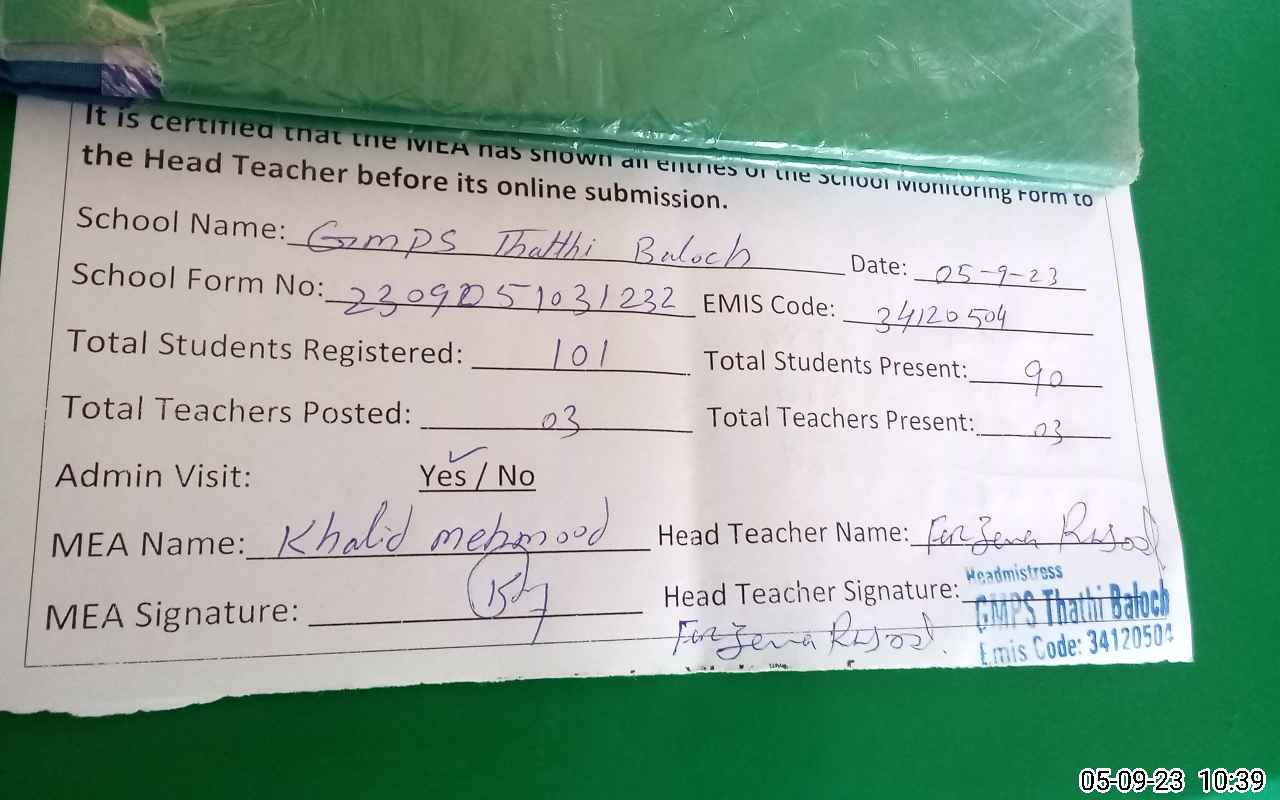 It is certified that the MEA has shown all entries of the School Monitoring Form to
the Head Teacher before its online submission.
School Name: GMPS Thatthi Baloch Date: 05-9-23
School Form No: 2309051031232 EMIS Code: 34120504
Total Students Registered: 101 Total Students Present: 90
Total Teachers Posted: 03 Total Teachers Present: 03
Admin Visit: Yes / No
MEA Name: Khalid mehmood Head Teacher Name: Farzena Rasool
MEA Signature: Head Teacher Signature:
Farzena Rasool.
Headmistress
GMPS Thathi Baloch
Emis Code: 34120504
05-09-23 10:39